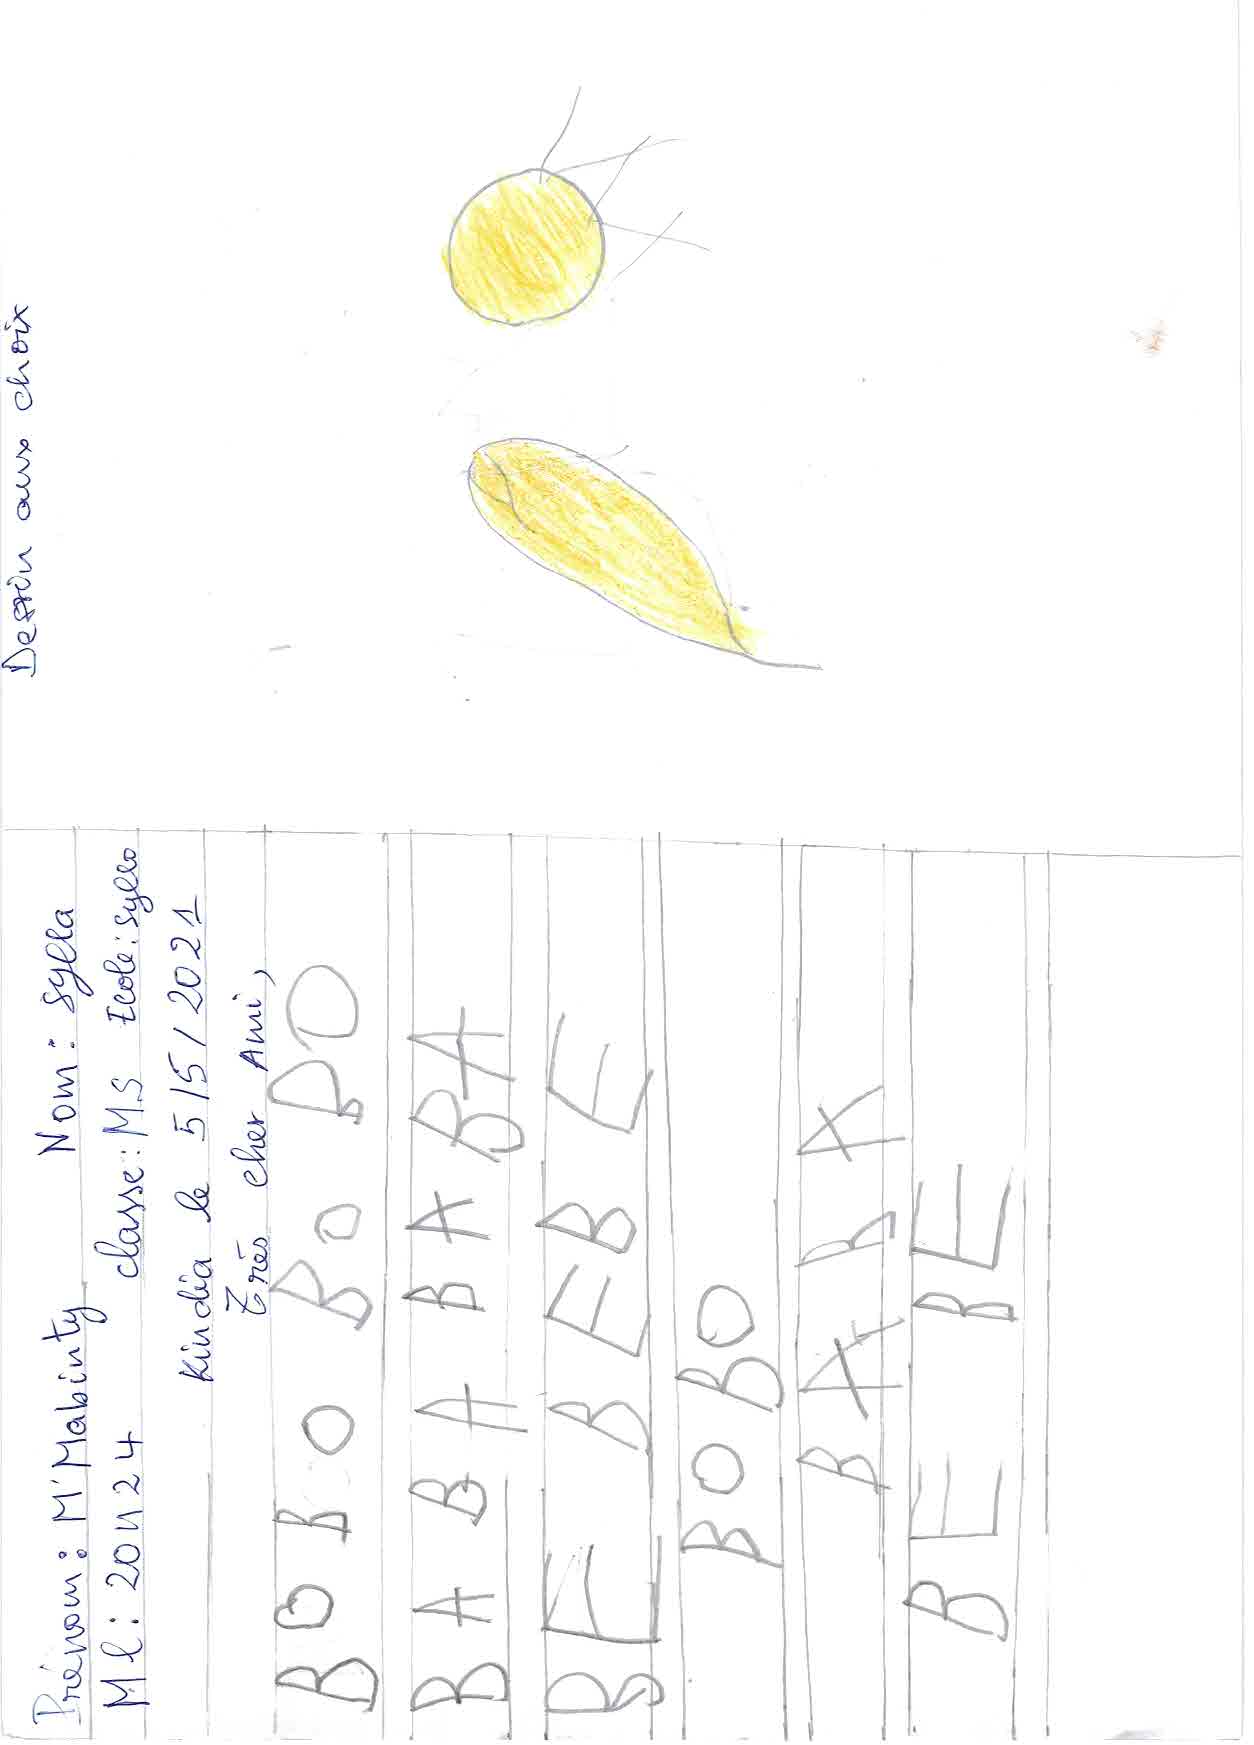 Prénom: M'Mabinty Nom: Sylla
Ml: 201124 classe: MS Ecole: Sylla
Kindia le 5/5/2021
Très cher Ami,
BO BO BO BO
BA BA BA BA
BE BE BE
BO BO
BA BA
BE BE
Dessin aux choix